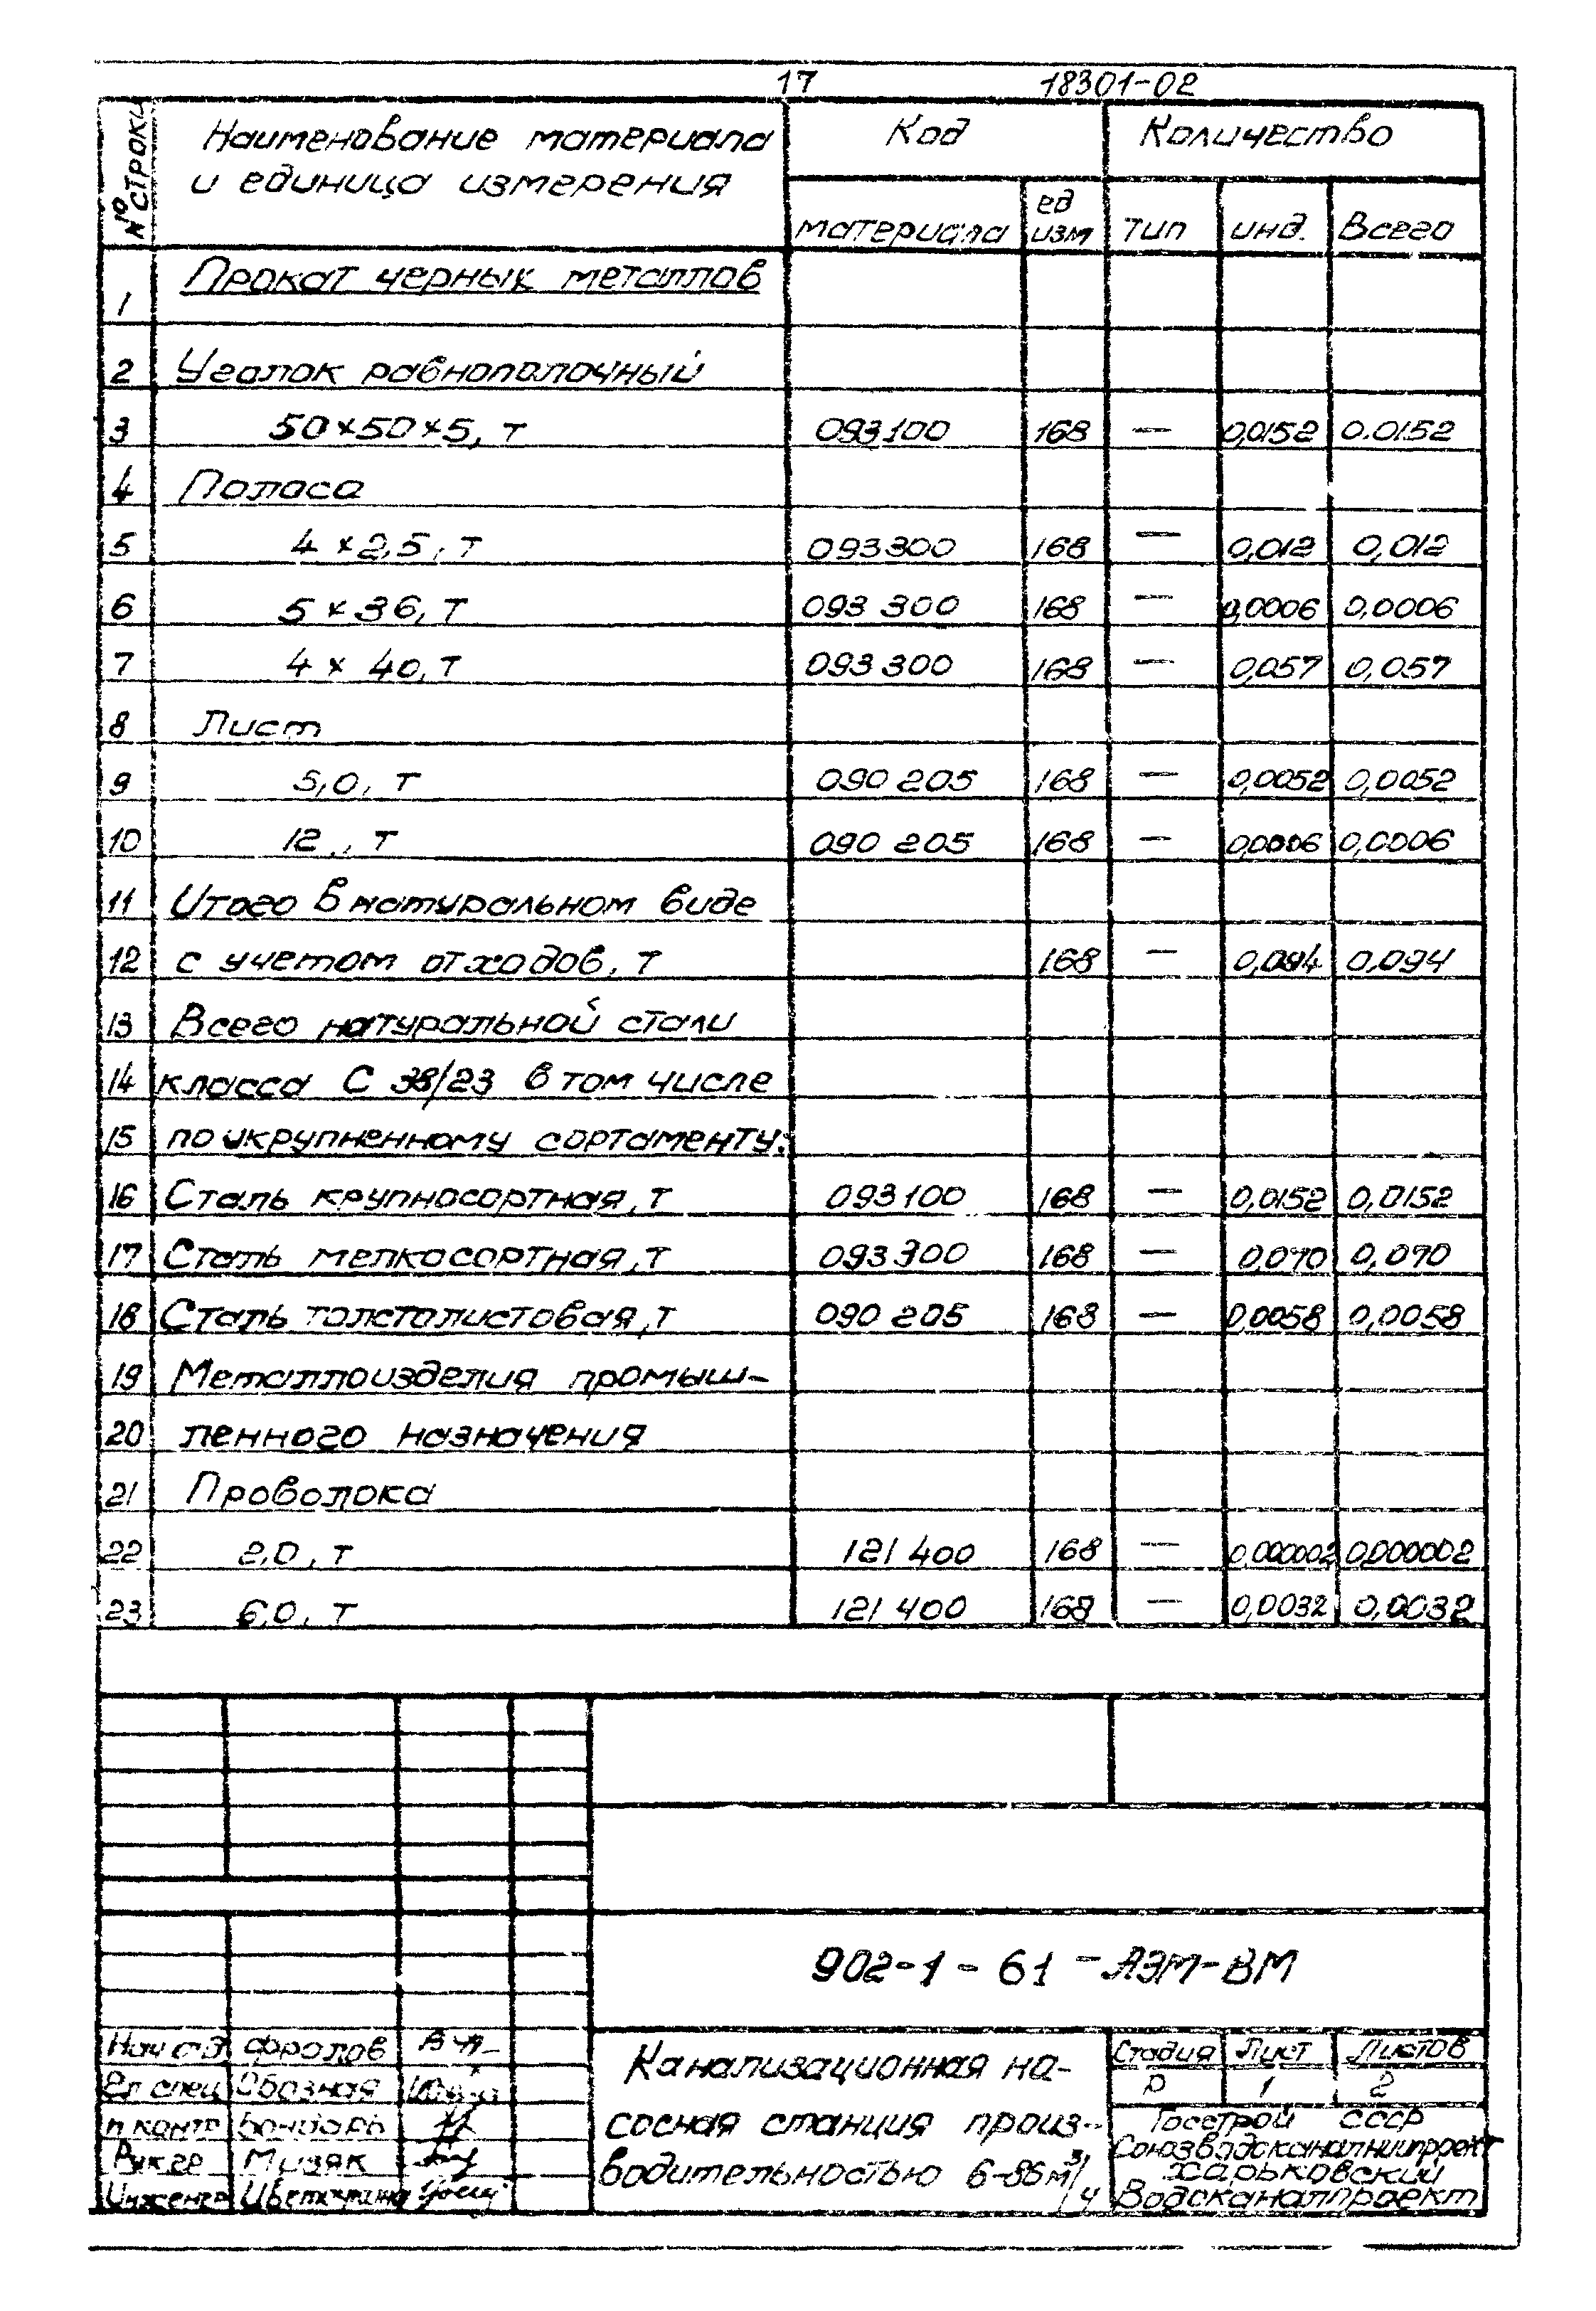 17 18301-02
№ строки Наименование материала и единица измерения Код Количество
материала ед изм тип инд. Всего
1 Прокат черных металлов
2 Уголок равнополочный
3 50×50×5, т 093100 168 — 0,0152 0.0152
4 Полоса
5 4 × 2,5, т 093300 168 — 0,012 0,012
6 5 × 36, т 093 300 168 — 0,0006 0,0006
7 4 × 40, т 093 300 168 — 0,057 0,057
8 Лист
9 5,0, т 090 205 168 — 0,0052 0,0052
10 12,, т 090 205 168 — 0,0006 0,0006
11 Итого в натуральном виде
12 с учетом отходов, т 168 — 0,094 0,094
13 Всего натуральной стали
14 класса С 38/23 в том числе
15 по укрупненному сортаменту:
16 Сталь крупносортная, т 093100 168 — 0,0152 0,0152
17 Сталь мелкосортная, т 093300 168 — 0,070 0,070
18 Сталь толстолистовая, т 090 205 168 — 0,0058 0,0058
19 Металлоизделия промыш-
20 ленного назначения
21 Проволока
22 2,0, т 121 400 168 — 0,000002 0,000002
23 6,0, т 121 400 168 — 0,0032 0,0032
902-1-61-АЭМ-ВМ
Нач отд Фролов
Гл спец Обозная
н контр Бондарь
Рук гр Мизяк
Инженер
Канализационная на-
сосная станция произ-
водительностью 6-86 м³/ч
Стадия Лист Листов
Р 1 2
Госстрой СССР
Союзводоканалниипроект
Харьковский
Водоканалпроект